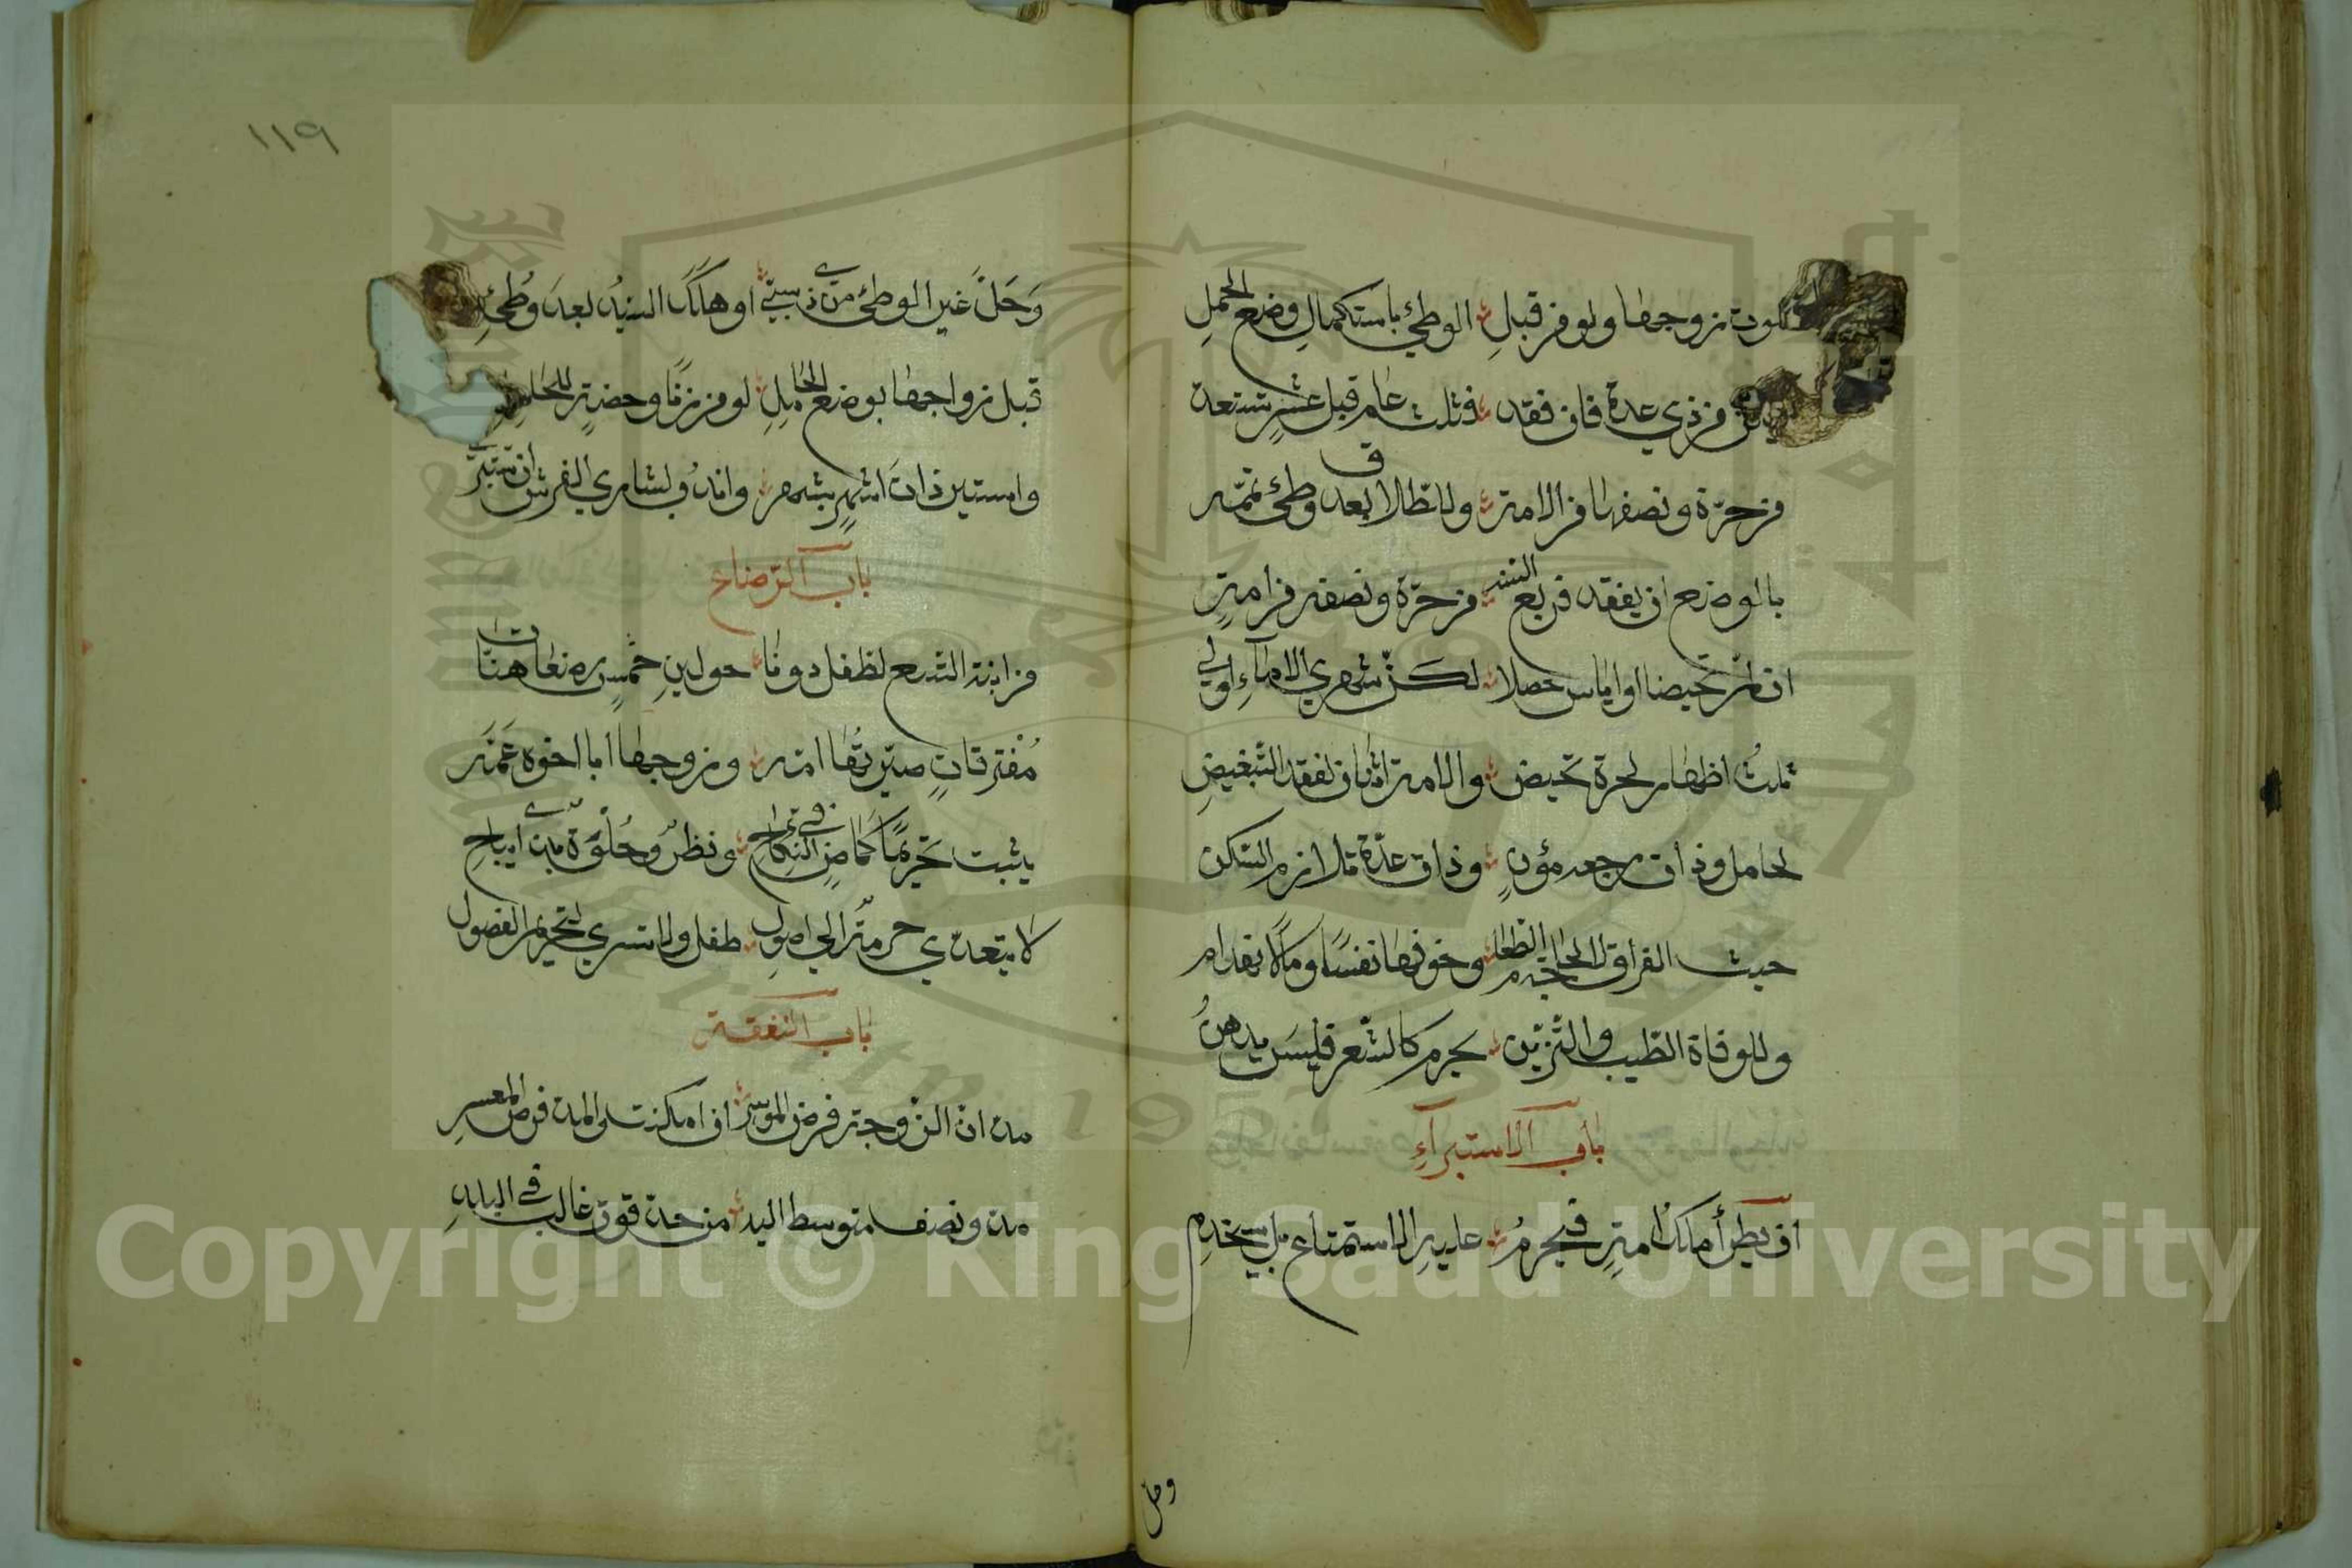 لموت زوجها ولو من قبل الوطئ باستكمال وضع الحمل
من ذي عدة فان فقد فثلث عام قبل عشر تستعد
من حرة ونصفها من الامة وللطلاق بعد وطئ تمته
بالوضع ان يفقد فربع السنه من حرة ونصفه من امة
ان لم تحيضا او اياس حصلا لكن شهري الاماء اولي
ثلث اطهار لحرة تحيض والامة اثنان لفقد التبغيض
لحامل وذات رجعه مؤن وذات عدة تلازم السكن
حيث الفراق لا لحاجة الطعام وخوفها نفسا ومالا كانهدام
وللوفاة الطيب والتزين يحرم كالشعر فليس يدهن
باب الاستبراء
ان يطرأ ملك امة فيحرم عليه الاستمتاع بل يستخدم
وحل
١١٩
وحل غير الوطئ من ذي سبي او هلك السيد بعد وطئ
قبل زواجها بوضع الحامل لو من زنا وحضة للحائل
واستبر ذات اشهر بشهر واندب لشاري الفرش ان يستبري
باب الرضاع
من ابنة التسع لطفل دونا حولين خمس رضعات هنا
مفترقات صيرتها امه وزوجها ابا اخوه عمه
يثبت تحريما كما مضي في النكاح ونظر وخلوة بذي ايباح
لا يتعدي حرمة الي اصول طفل ولا تسري لتحريم الفصول
باب النفقة
مدان للزوجة فرض الموسر ان امكنت والمد فرض المعسر
مد ونصف متوسط اليد من حب قوت غالب في البلد
Copyright © King Saud University
1957